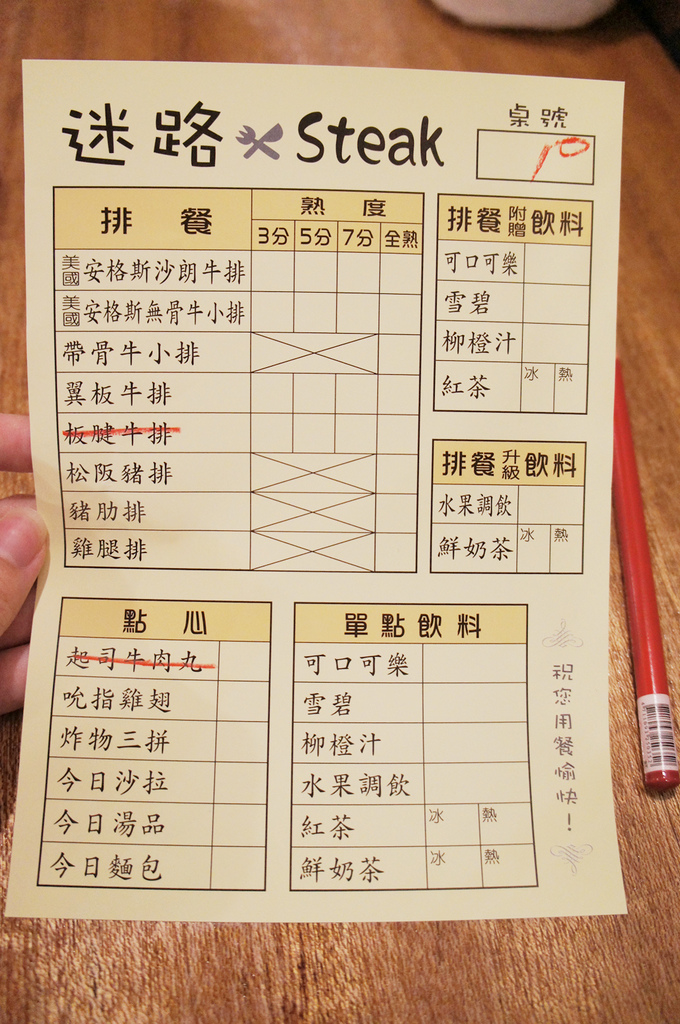 迷路 Steak
桌號
排餐 熟度
3分 5分 7分 全熟
美國安格斯沙朗牛排
美國安格斯無骨牛小排
帶骨牛小排
翼板牛排
板腱牛排
松阪豬排
豬肋排
雞腿排
排餐附贈飲料
可口可樂
雪碧
柳橙汁
紅茶 冰 熱
排餐升級飲料
水果調飲
鮮奶茶 冰 熱
點心
起司牛肉丸
吮指雞翅
炸物三拼
今日沙拉
今日湯品
今日麵包
單點飲料
可口可樂
雪碧
柳橙汁
水果調飲
紅茶 冰 熱
鮮奶茶 冰 熱
祝您用餐愉快！